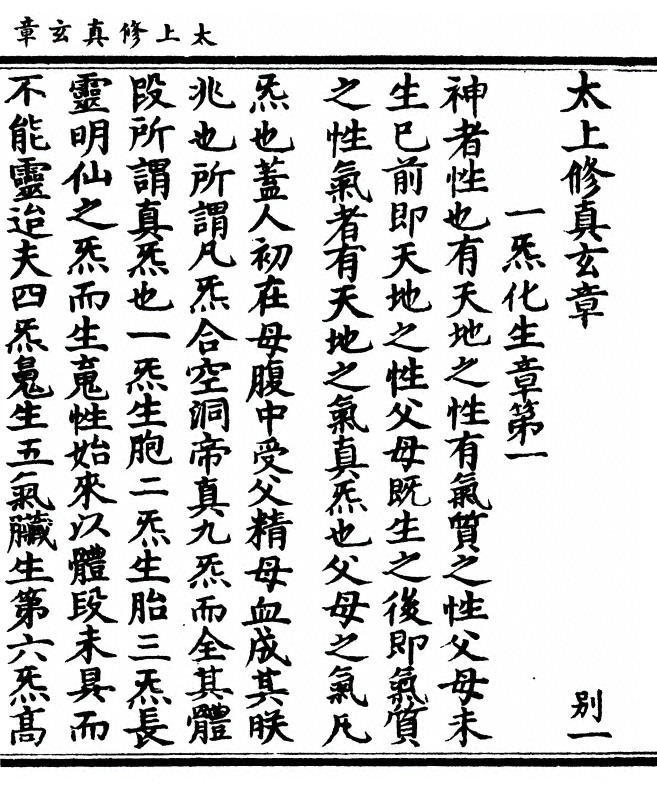 太上修真玄章
太上修真玄章 別一
一炁化生章第一
神者性也有天地之性有氣質之性父母未
生巳前即天地之性父母既生之後即氣質
之性氣者有天地之氣真炁也父母之氣凡
炁也蓋人初在母腹中受父精母血成其朕
兆也所謂凡炁合空洞帝真九炁而全其體
段所謂真炁也一炁生胞二炁生胎三炁長
靈明仙之炁而生䰟性始來以體段未具而
不能靈迨夫四炁魄生五氣臟生第六炁高